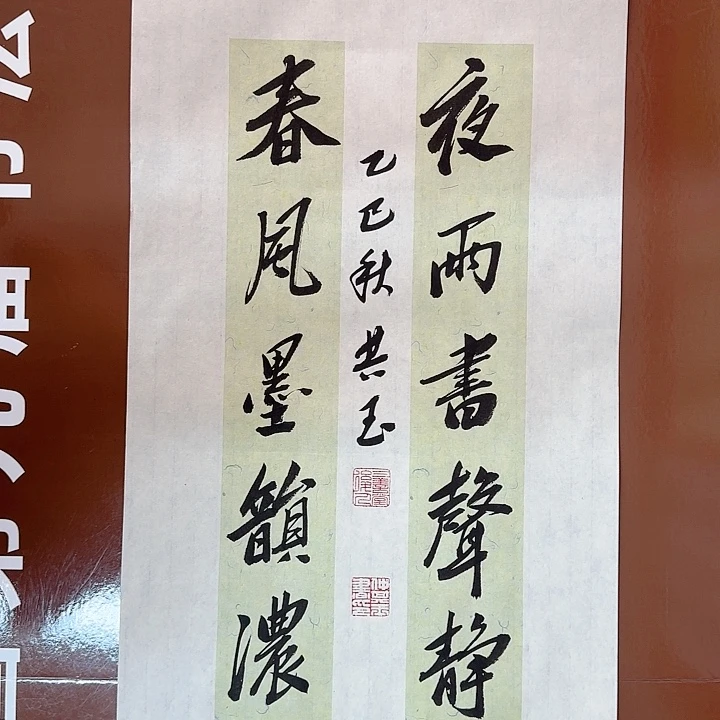 夜雨書聲静
春風墨韻濃
乙巳秋共玉